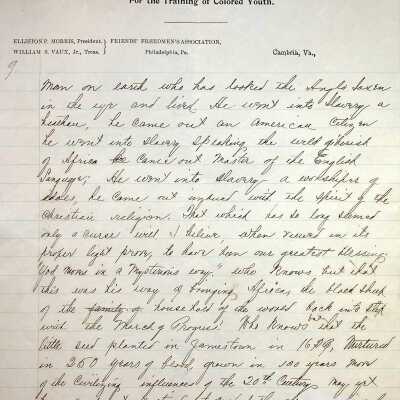 For the Training of Colored Youth.
ELLISTON P. MORRIS, President. } FRIENDS' FREEDMEN'S ASSOCIATION,
WILLIAM S. VAUX, Jr., Treas. Philadelphia, Pa. Cambria, Va.,
9
man on earth who has looked the Anglo Saxon
in the eye and lived. He went into slavery a
heathen, he came out an American citizen
he went into slavery speaking the wild giberish
of Africa he came out Master of the English
language; He went into slavery a worshiper of
idols, he came out imbued with the spirit of the
Christian religion. That which has so long seemed
only a curse will I believe, when viewed in its
proper light prove, to have been our greatest blessing
"God moves in a mysterious way," who knows but what
this was his way of bringing Africa, the black sheep
of the family of household of the world back into step
with the March of Progress. Who knows but that the
little seed planted in Jamestown in 1619, Nurtured
in 250 years of blood, grown in 100 years more
of the Civilizing influences of the 20th Century may yet